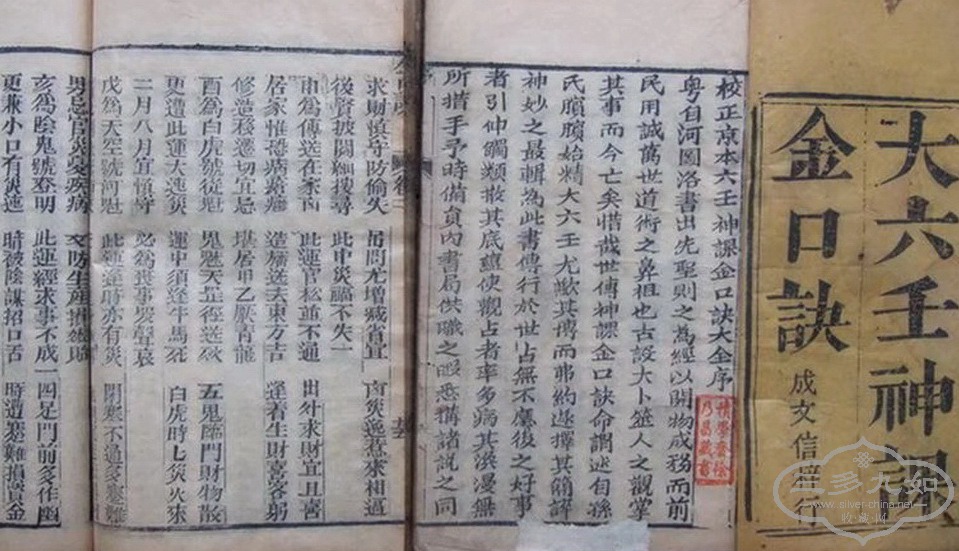 大六壬神課
金口訣
成文信
校正京本六壬神課金口訣大全序
粵自河圖洛書出先聖則之為經以開物成務而前
民用誠萬世道術之鼻祖也古設大卜筮人之觀掌
其事而今亡矣惜哉世傳神課金口訣命謂述自孫
氏臏臏始精大六壬尤歉其博而弗約遂擇其簡評
神妙之最輯為此書傳行於世占無不應後之好事
者引伸觸類散其底蘊使觀占者率多病其洪漫無
所措手予時備員內書局供職之暇悉搆諸説之同
求財慎守防偷失
後賢披閱細搜尋
申為傳送在家
居家惟恐病瘡
修造移遷切宜忌
酉為白虎號從魁
更遭此運大逢災
二月八月宜慎守
戊為天空號河魁
男忌官災憂疾病
亥為陰鬼號登明
更兼小口有災逢
此中災福不失一
此運官松並不通
造屋遷去東方吉
堪居甲乙厭青龍
鬼魁天
運中須逢牛馬死
必為喪事哭聲哀
此運逢時亦有災
此運經求事不成
暗被陰謀招口舌
來相逼
出外求財宜且喜
逢着生財喜客躬
五鬼臨門財物散
白虎時七災火來
閉塞不通多蹇難
四足門前多作幽
時遭蹇難損資金
www.silver-china.com
收·藏·网